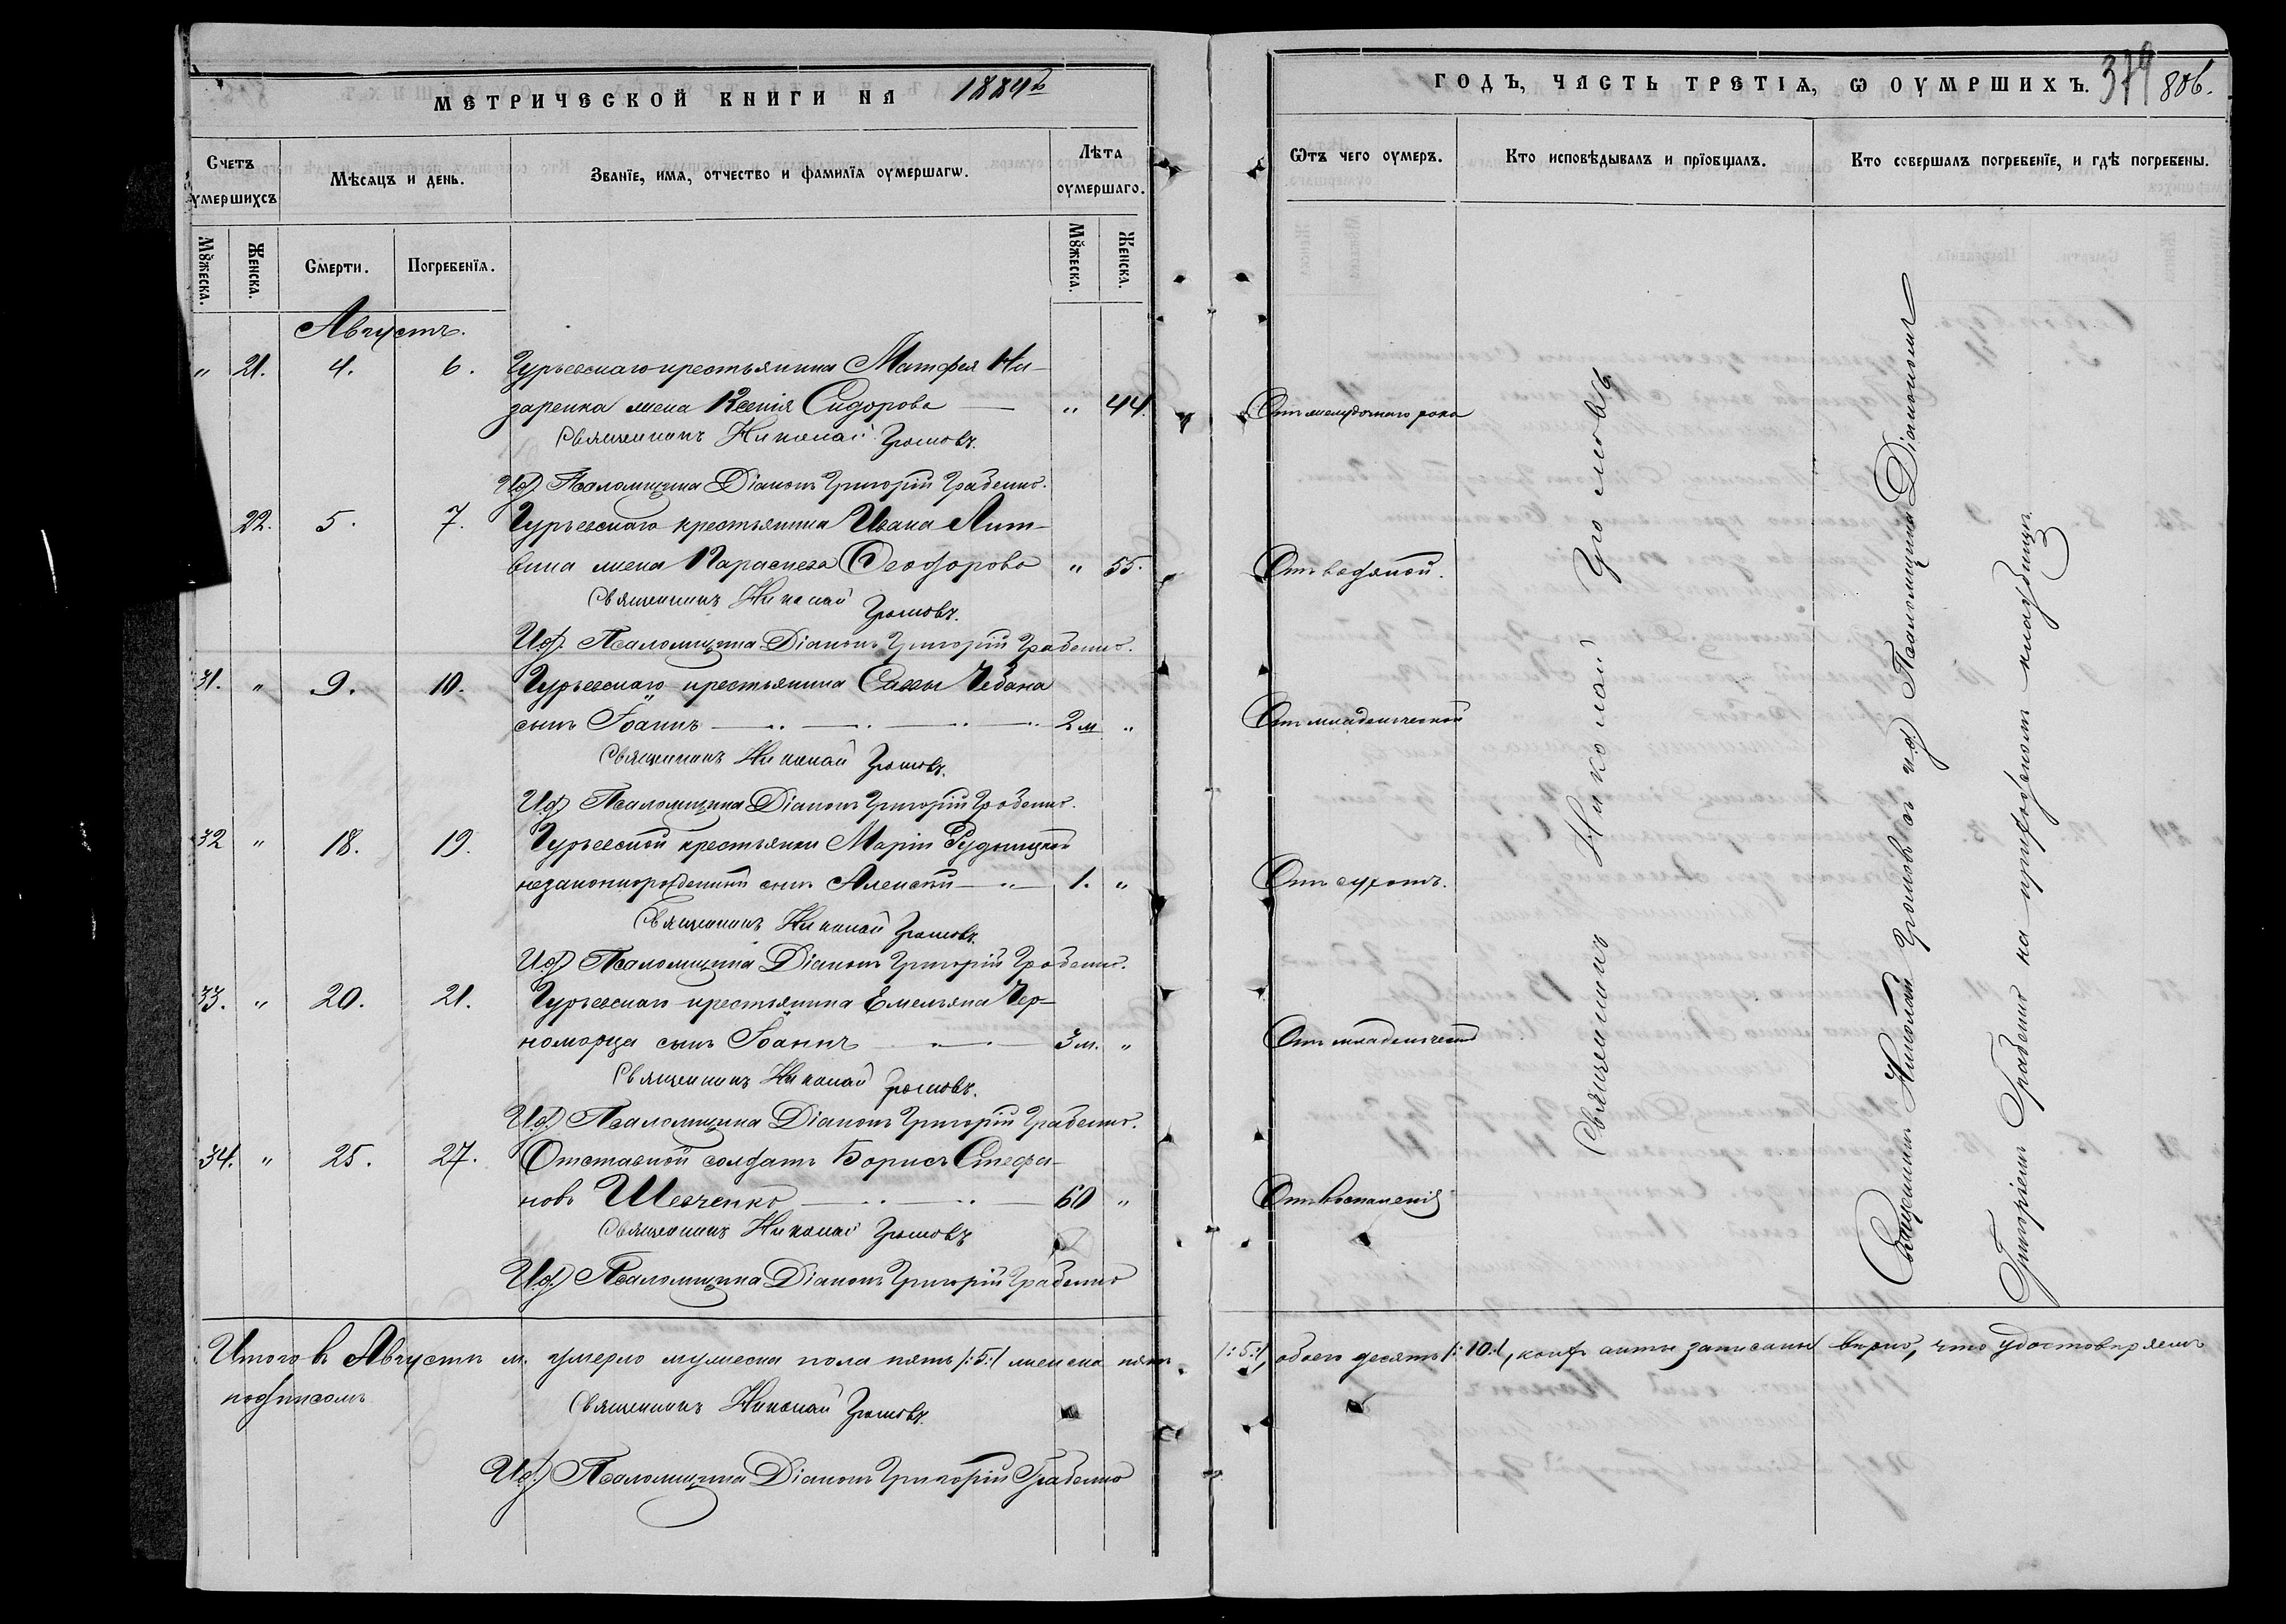 МЕТРИЧЕСКОЙ КНИГИ НА 1889й
Счетъ умершихсъ
Мѣсяцъ и день.
Званїе, имѧ, отчество и фамилїѧ оумершагѡ.
Лѣта оумершаго.
Мꙋжеска.
Женска.
Смерти.
Погребенїѧ.
Мꙋжеска.
Женска.
Августъ.
" 21. 4. 6. Гурьевскаго крестьянина Матфея На-
заренка жена Ксенія Сидорова — " 44.
Священникъ Николай Громовъ.
И.д. Псаломщика Діаконъ Григорій Грабенко.
22. 5. 7. Гурьевскаго крестьянина Ивана Лит-
вина жена Параскева Ѳеодорова " 55.
Священникъ Николай Громовъ.
И.д. Псаломщика Діаконъ Григорій Грабенко.
31. " 9. 10. Гурьевскаго крестьянина Саввы Чебана
сынъ Іоаннъ — 2 м "
Священникъ Николай Громовъ.
И.д. Псаломщика Діаконъ Григорій Грабенко.
32 " 18. 19. Гурьевской крестьянки Маріи Рудницкой
незаконнорожденный сынъ Алексѣй — 1. "
Священникъ Николай Громовъ.
И.д. Псаломщика Діаконъ Григорій Грабенко.
33. " 20. 21. Гурьевскаго крестьянина Емельяна Чер-
номорца сынъ Іоаннъ — 3 м. "
Священникъ Николай Громовъ.
И.д. Псаломщика Діаконъ Григорій Грабенко.
34. " 25. 27. Отставной солдатъ Борисъ Стефа-
новъ Шевченко — 60 "
Священникъ Николай Громовъ
И.д. Псаломщика Діаконъ Григорій Грабенко
Итого въ Августѣ м. умерло мужеска пола пять /:5:/ женска пять
подписомъ
Священникъ Николай Громовъ.
И.д. Псаломщика Діаконъ Григорій Грабенко
ГОДЪ, ЧАСТЬ ТРЕТІѦ, Ѡ ОУМРШИХЪ. 379 806.
Ѿтъ чего оумеръ.
Кто исповѣдывалъ и прїобщалъ.
Кто совершалъ погребенїе, и гдѣ погребены.
Отъ желудочнаго рака
Отъ водяной.
Отъ младенческой
Отъ сухотъ.
Отъ младенческой
Отъ воспаленія
Священникъ Николай Громовъ
Священникъ Николай Громовъ съ и.д. Псаломщика Діакономъ
Григоріемъ Грабенко на приходскомъ кладбищѣ.
/:5:/, обоего десять /:10:/, коихъ акты записаны вѣрно, что удостовѣряемъ